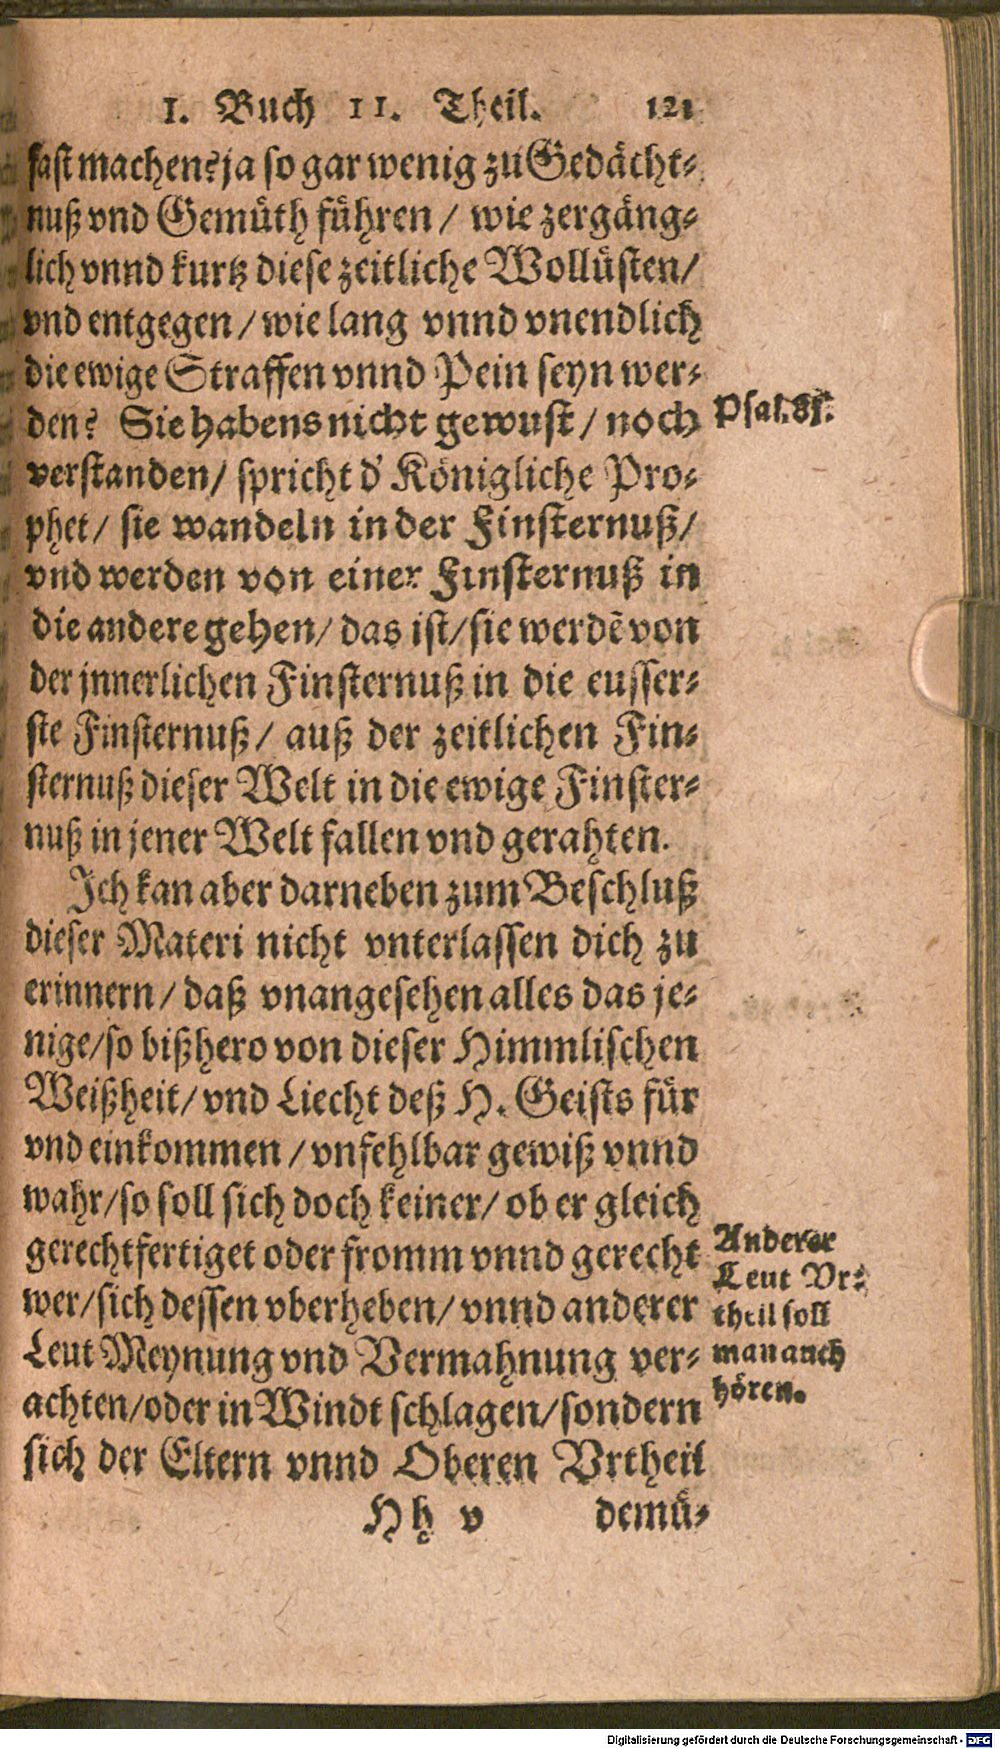 I. Buch II. Theil. 121
fast machen? ja so gar wenig zu Gedächt-
nuß vnd Gemüth führen / wie zergäng-
lich vnnd kurtz diese zeitliche Wollüsten /
vnd entgegen / wie lang vnnd vnendlich
die ewige Straffen vnnd Pein seyn wer-
den? Sie habens nicht gewust / noch
Psal. 81.
verstanden / spricht d' Königliche Pro-
phet / sie wandeln in der Finsternuß /
vnd werden von einer Finsternuß in
die andere gehen / das ist / sie werdē von
der jnnerlichen Finsternuß in die eusser-
ste Finsternuß / auß der zeitlichen Fin-
sternuß dieser Welt in die ewige Finster-
nuß in jener Welt fallen vnd gerahten.
Ich kan aber darneben zum Beschluß
dieser Materi nicht vnterlassen dich zu
erinnern / daß vnangesehen alles das je-
nige / so bißhero von dieser Himmlischen
Weißheit / vnd Liecht deß H. Geists für
vnd einkommen / vnfehlbar gewiß vnnd
wahr / so soll sich doch keiner / ob er gleich
gerechtfertiget oder fromm vnnd gerecht
wer / sich dessen vberheben / vnnd anderer
Leut Meynung vnd Vermahnung ver-
achten / oder in Windt schlagen / sondern
sich der Eltern vnnd Oberen Vrtheil
Anderer
Leut Vr-
theil soll
man auch
hören.
Hh v demü-
Digitalisierung gefördert durch die Deutsche Forschungsgemeinschaft - DFG